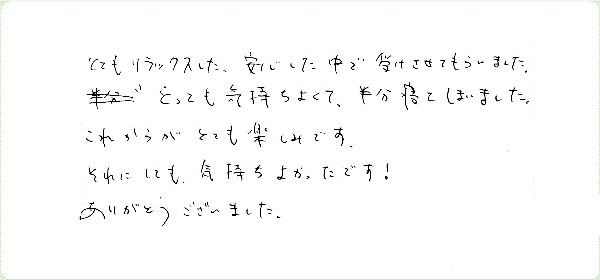 とてもリラックスした、安心した中で受けさせてもらいました。
とっても気持ちよくて、半分寝てしまいました。
これからがとても楽しみです。
それにしても、気持ちよかったです!
ありがとうございました。